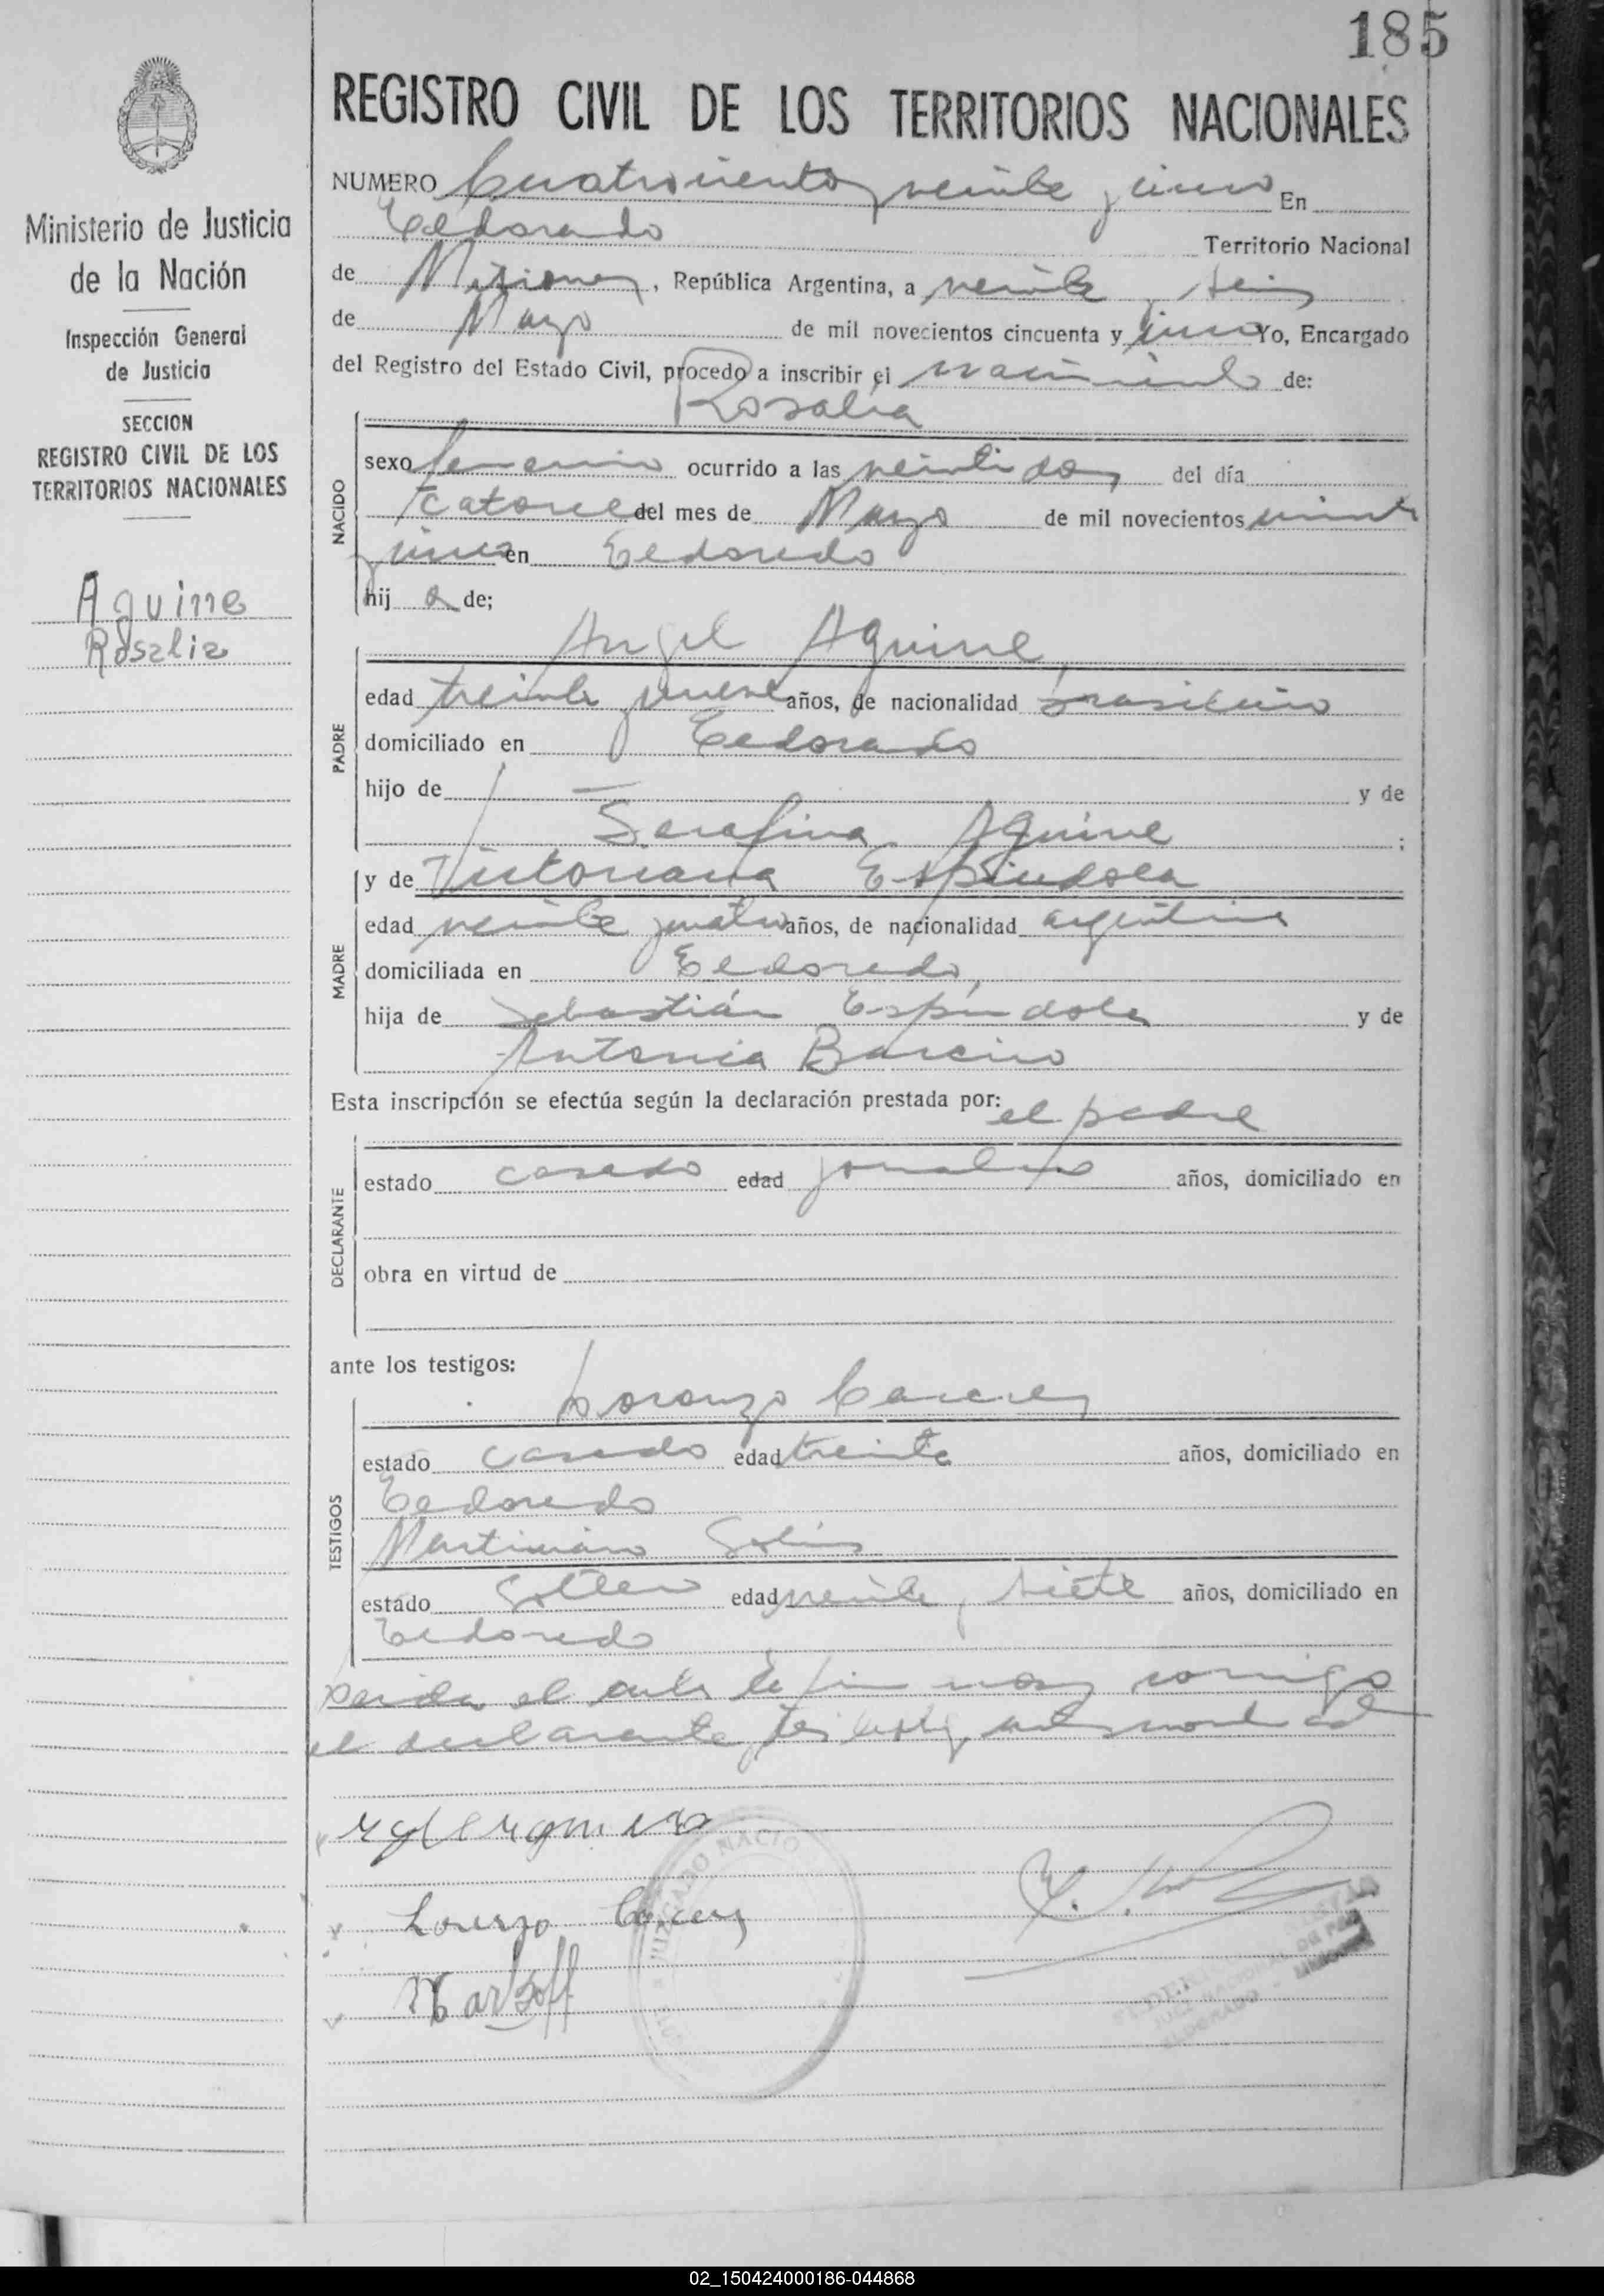 185
REGISTRO CIVIL DE LOS TERRITORIOS NACIONALES
Ministerio de Justicia
de la Nación
Inspección General
de Justicia
SECCION
REGISTRO CIVIL DE LOS
TERRITORIOS NACIONALES
Aguirre
Rosalia
NUMERO Cuatrocientos veinte y cinco En
Eldorado Territorio Nacional
de Misiones, República Argentina, a veinte y seis
de Mayo de mil novecientos cincuenta y cinco Yo, Encargado
del Registro del Estado Civil, procedo a inscribir el nacimiento de:
Rosalia
NACIDO
sexo femenino ocurrido a las veintidos del día
catorce del mes de Mayo de mil novecientos
y cinco en Eldorado
hij a de;
Angel Aguirre
PADRE
edad treinta y nueve años, de nacionalidad brasileño
domiciliado en Eldorado
hijo de — y de
Serafina Aguirre ;
y de Victoriana Espindola
MADRE
edad veinte y cuatro años, de nacionalidad argentina
domiciliada en Eldorado,
hija de Sebastián Espíndola y de
Antonia
Esta inscripción se efectúa según la declaración prestada por: el padre
DECLARANTE
estado casado edad jornalero años, domiciliado en
obra en virtud de
ante los testigos:
Lorenzo Caceres
TESTIGOS
estado casado edad treinta años, domiciliado en
Eldorado
Martiniano
estado soltero edad veinte y siete años, domiciliado en
Eldorado
el acta la conmigo
el declarante
Lorenzo Caceres
JUZGADO NACIO